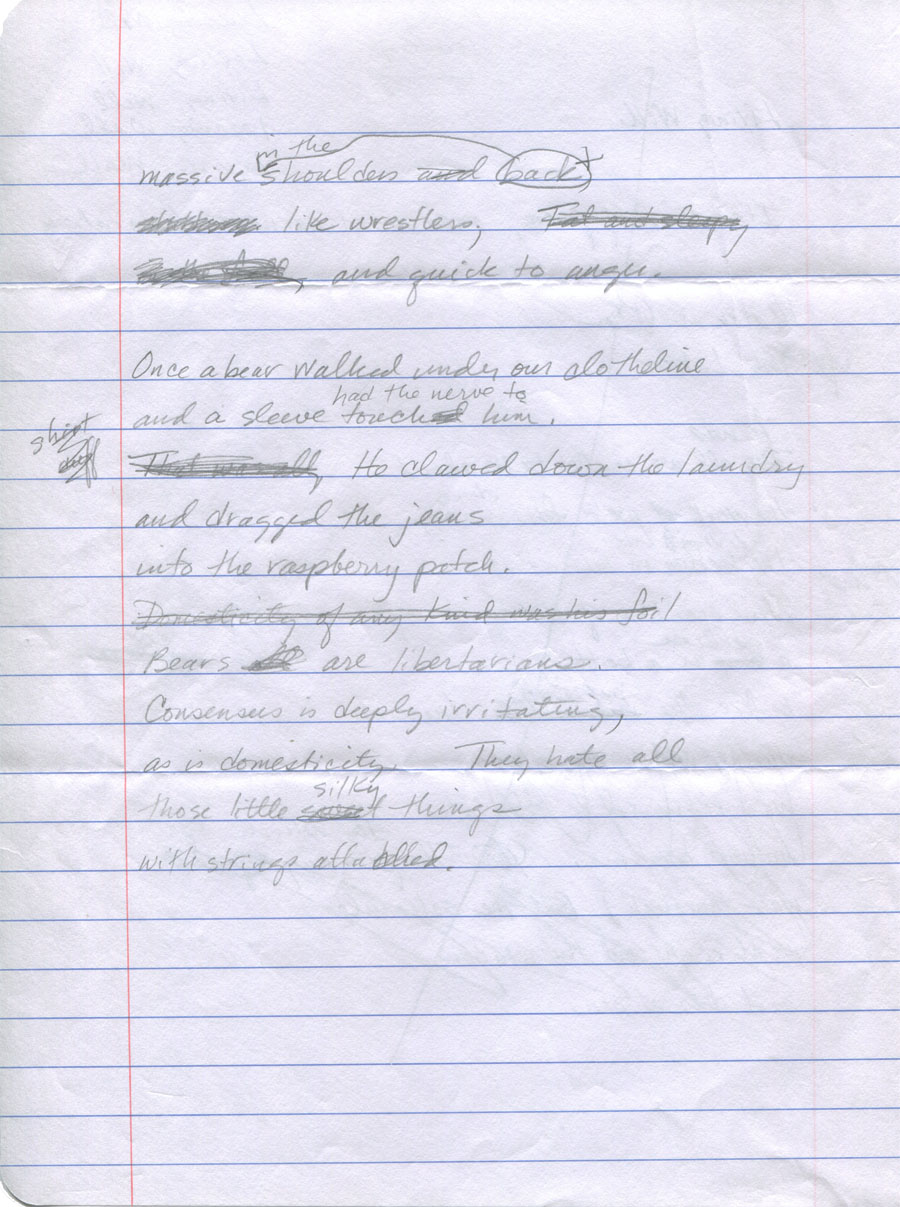 in the
massive shoulders and back
like wrestlers, Fat and sleepy
, and quick to anger.
Once a bear walked under our clothesline
had the nerve to
and a sleeve touched him.
shirt
That was all, He clawed down the laundry
and dragged the jeans
into the raspberry patch.
Domesticity of any kind was his foil
Bears are libertarians.
Consensus is deeply irritating,
as is domesticity. They hate all
silky
those little things
with strings attached.